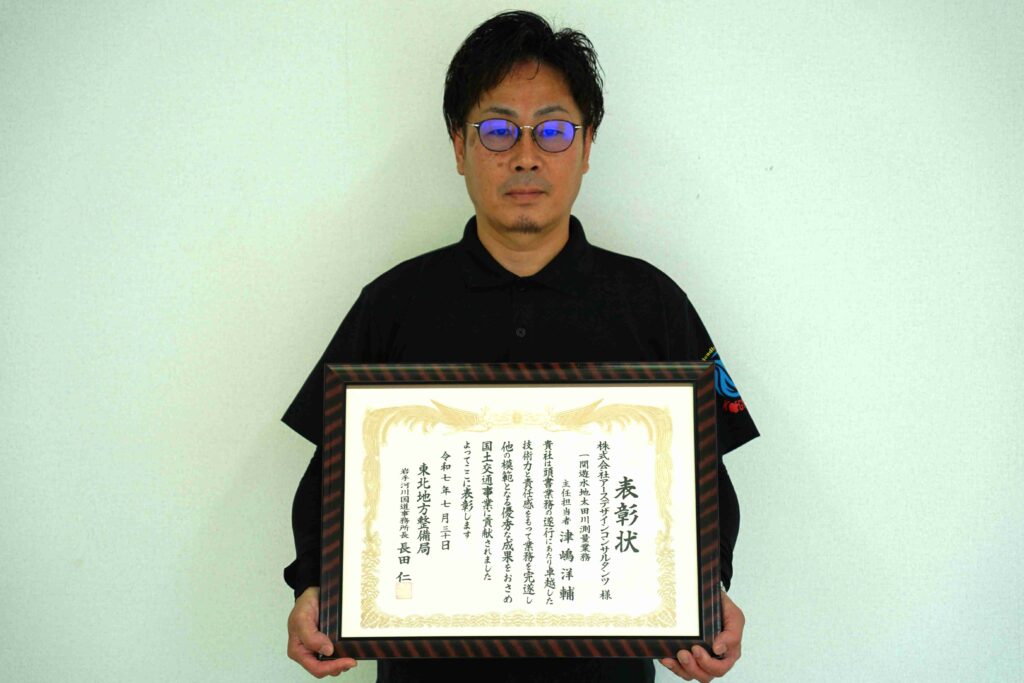 表彰状
株式会社アースデザインコンサルタンツ 様
一関遊水地太田川測量業務
主任担当者 津嶋洋輔
貴社は頭書業務の遂行にあたり卓越した
技術力と責任感をもって業務を完遂し
他の模範となる優秀な成果をおさめ
国土交通事業に貢献されました
よってここに表彰します
令和七年七月三十日
東北地方整備局
岩手河川国道事務所長 長田 仁